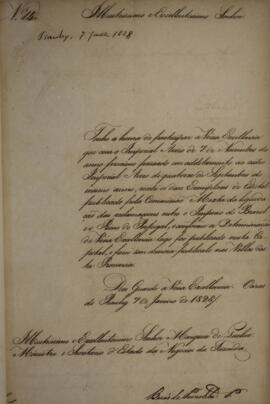 Illustrissimo e Excellentissimo Senhor
Piauhy, 7 Janr. 1828
Tenho a honra de participar a Vossa Excellencia
que com o Imperial Aviso de 7 de Novembro do
anno proximo passado em additamento ao outro
Imperial Aviso de quatorze de Septembro do
mesmo anno, recebi os dous Exemplares do Edital
publicado pela Commissão Mixta da liquida-
ção das reclamações entre o Imperio do Brasil
e o Reino de Portugal, e conforme a Determinação
de Vossa Excellencia logo foi publicado nesta Ca-
pital, e foi sem demora publicado nas Villas des-
ta Provincia.
Deos Guarde a Vossa Excellencia. Oeiras
do Piauhy 7 de Janeiro de 1828
Illustrissimo e Excellentissimo Senhor Marquez de
Ministro e Secretario d'Estado dos Negocios da Fazenda